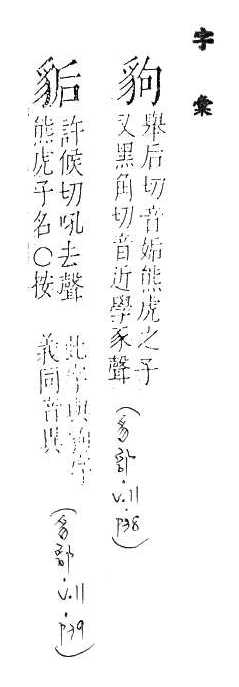 字彙
豿
舉后切音姤熊虎之子
又黑角切音近學豕聲
(豸部.V.11.P38)
許候切吼去聲
熊虎子名○按
此字與豿字
義同音異
(豸部.V.11.P39)